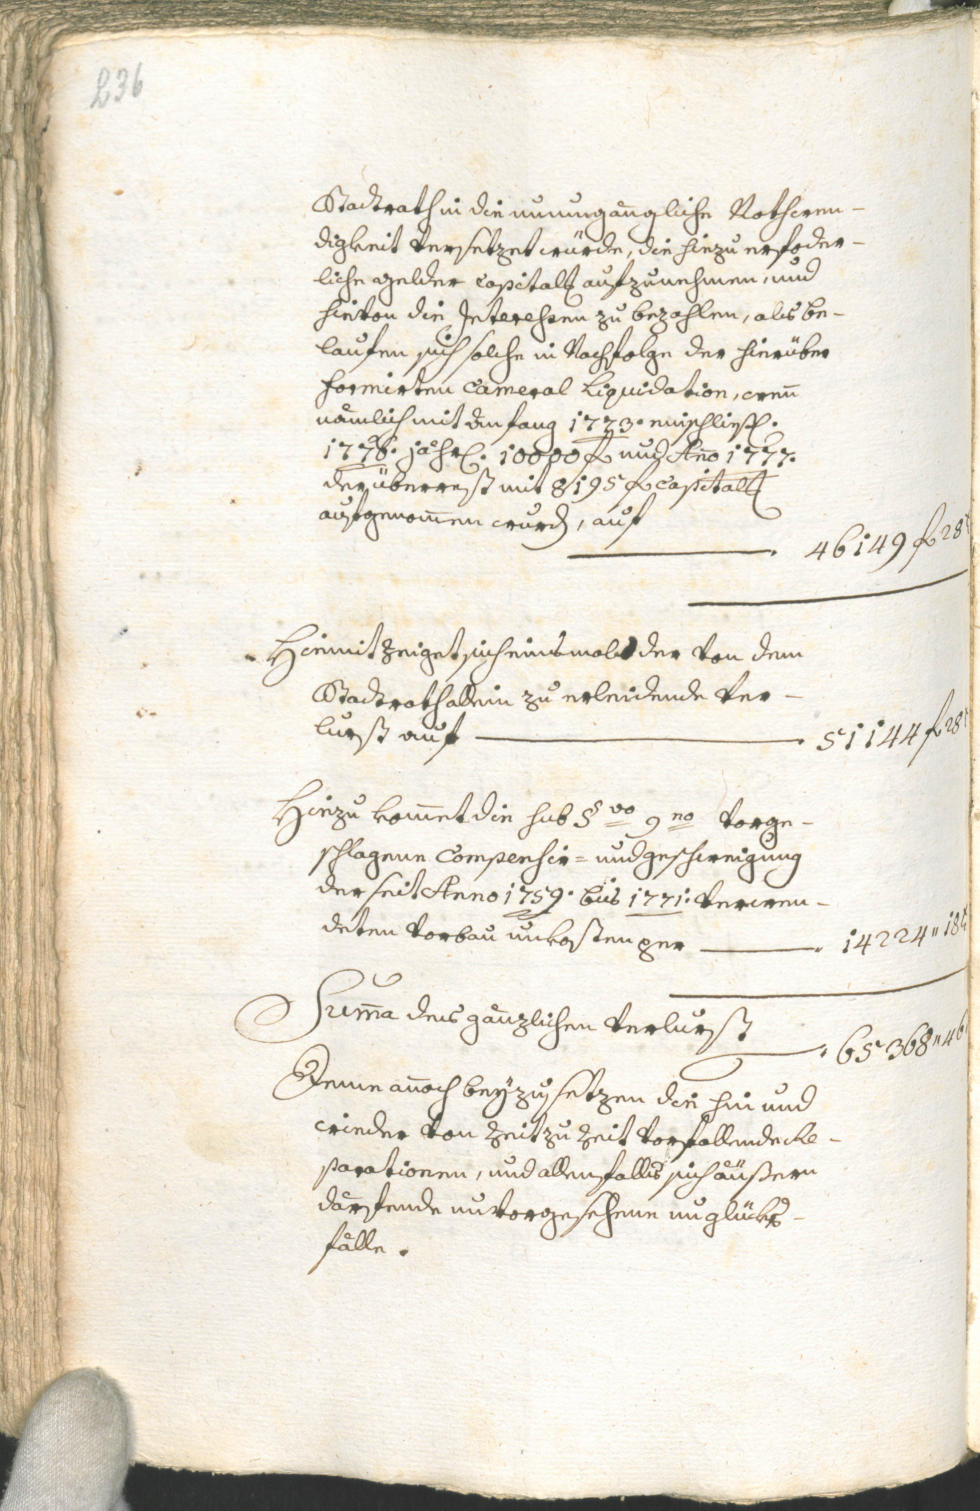 236
Stadtrath in die unumgängliche Nothwen-
digkeit versetzet würde, die hiezu erfoder-
liche gelder capitalr aufzunehmen, und
hievon die Interehsen zu bezahlen, als be-
laufen sich solche in Nachfolge der hierüber
formirten Cameral Liquidation, wenn
nämlich mit Anfang 1773. einschliess.
1776. jährl. 10000 f und Anno 1777.
der überrest mit 8195 f Capitalr
aufgenom̄en wurd, auf
46149 f 28
Hiemit zeiget sich einsmals der von dem
Stadtrath allein zu erleidende Ver-
lurst auf 51144 f 28
Hiezu kom̄et die sub § vo 9 no vorge-
schlagene Compensir= und geschweigung
der seit Anno 1759. bis 1771. verwen-
deten Vorbau unkosten per 14224 " 18
Sum̄a des gänzlichen Verlurst
65368 " 46
Deme annoch beyzusetzen die hin und
wieder von Zeit zu Zeit vorfallende Re-
parationen, und allenfalls sich äußern
därfende unvorgesehene unglücks-
fälle.